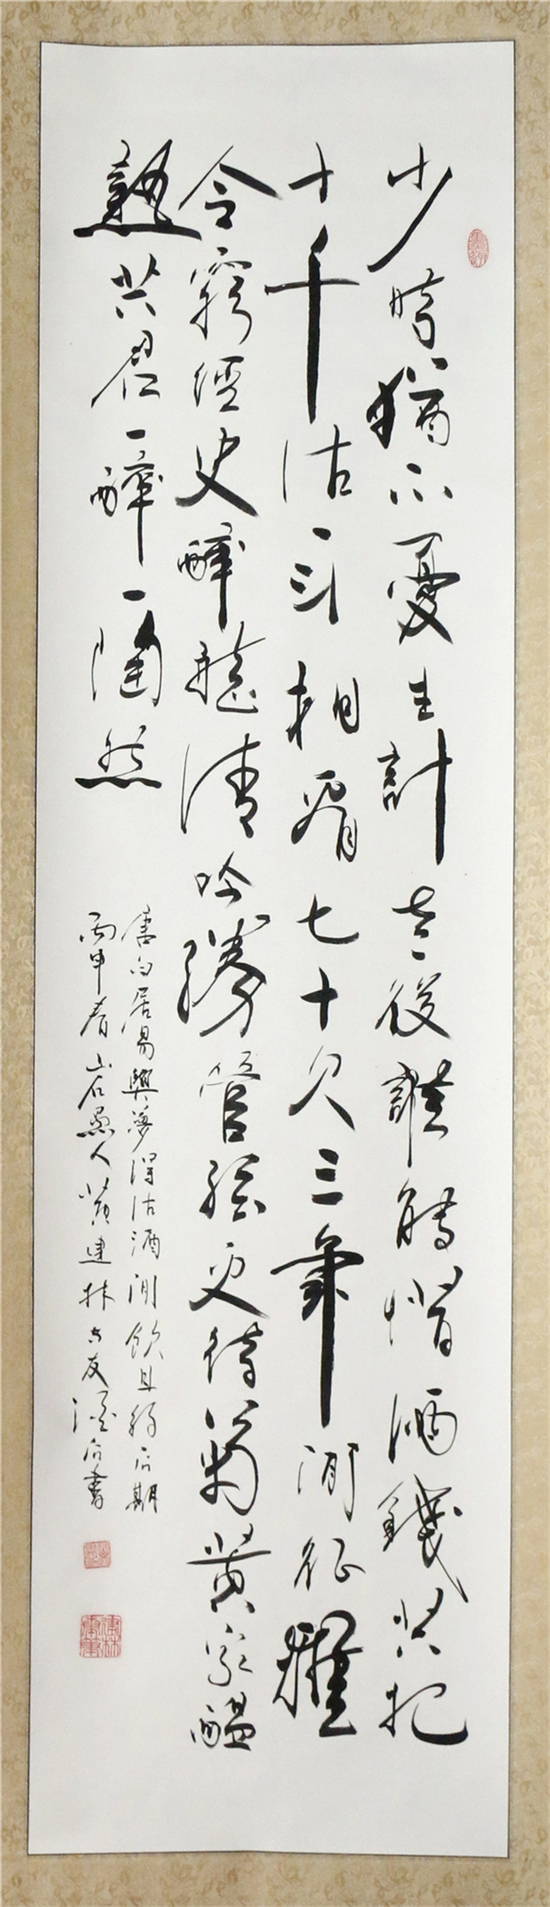 少時猶不憂生計老後誰能惜酒錢共把
十千沽一斗相看七十欠三年閒征雅
令窮經史醉聽清吟勝管絃更待菊黃家醞
熟共君一醉一陶然
唐白居易與夢得沽酒閒飲且約后期
丙申春山石愚人黃建林書